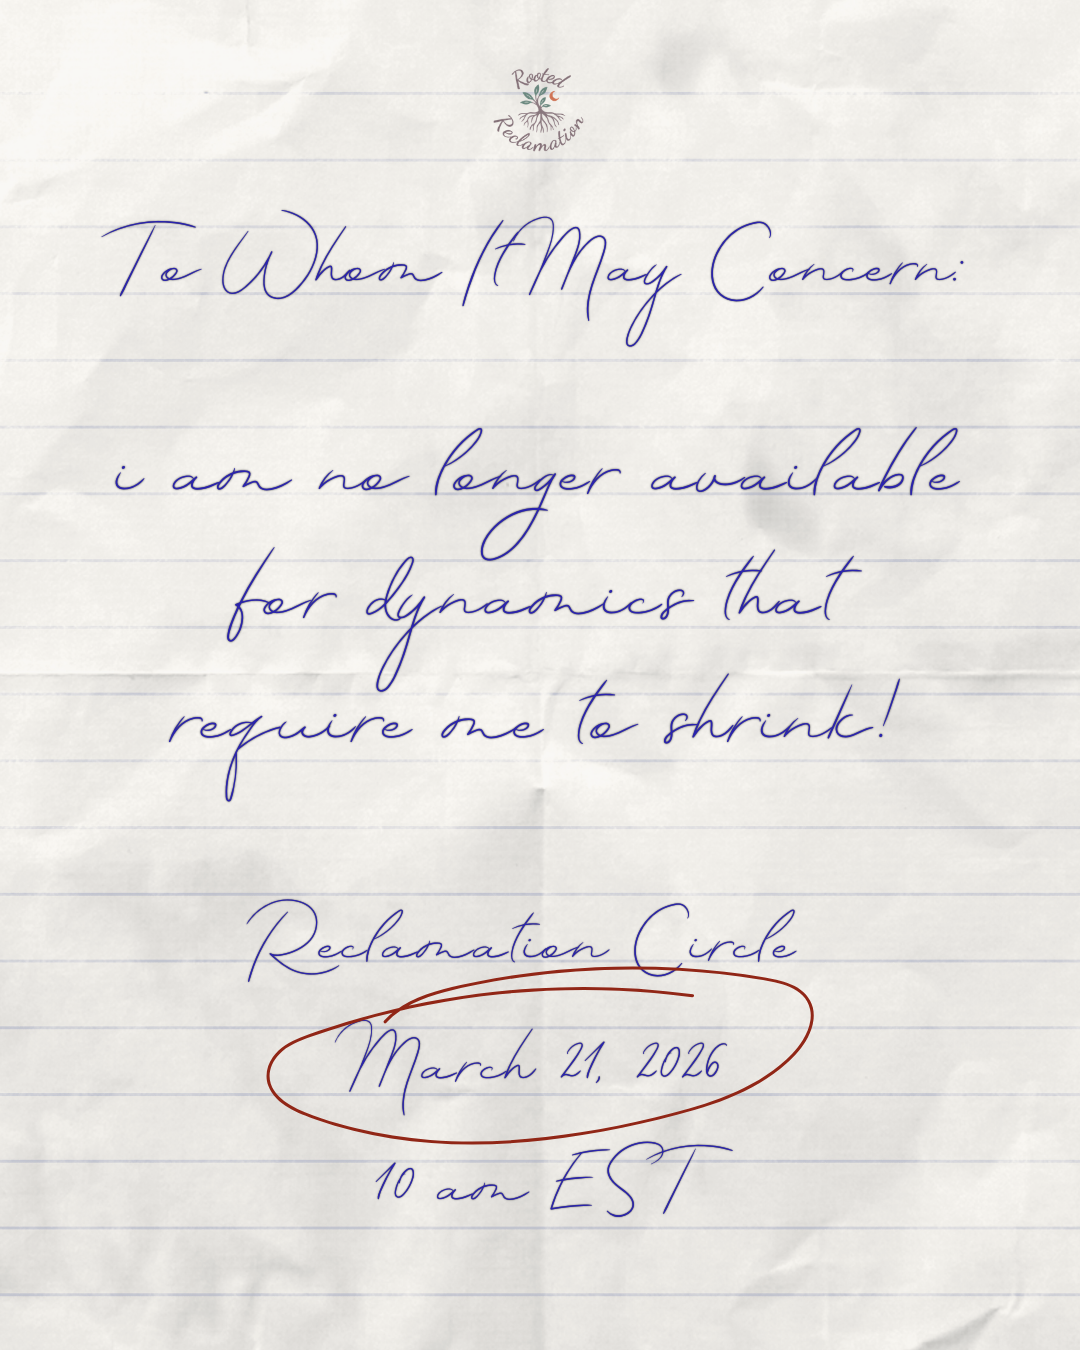 Rooted
Reclamation
To Whom It May Concern:
i am no longer available
for dynamics that
require me to shrink!
Reclamation Circle
March 21, 2026
10 am EST